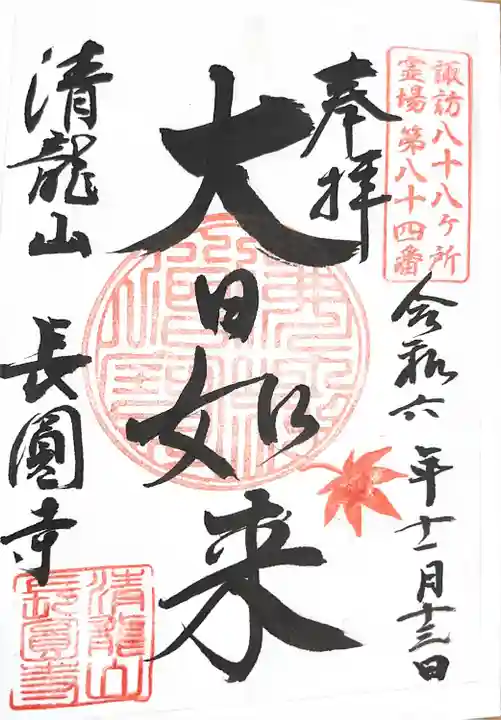 諏訪八十八ヶ所
霊場第八十四番
奉拝
令和六年十一月十三日
大日如来
清龍山 長圓寺
清龍山
長圓寺